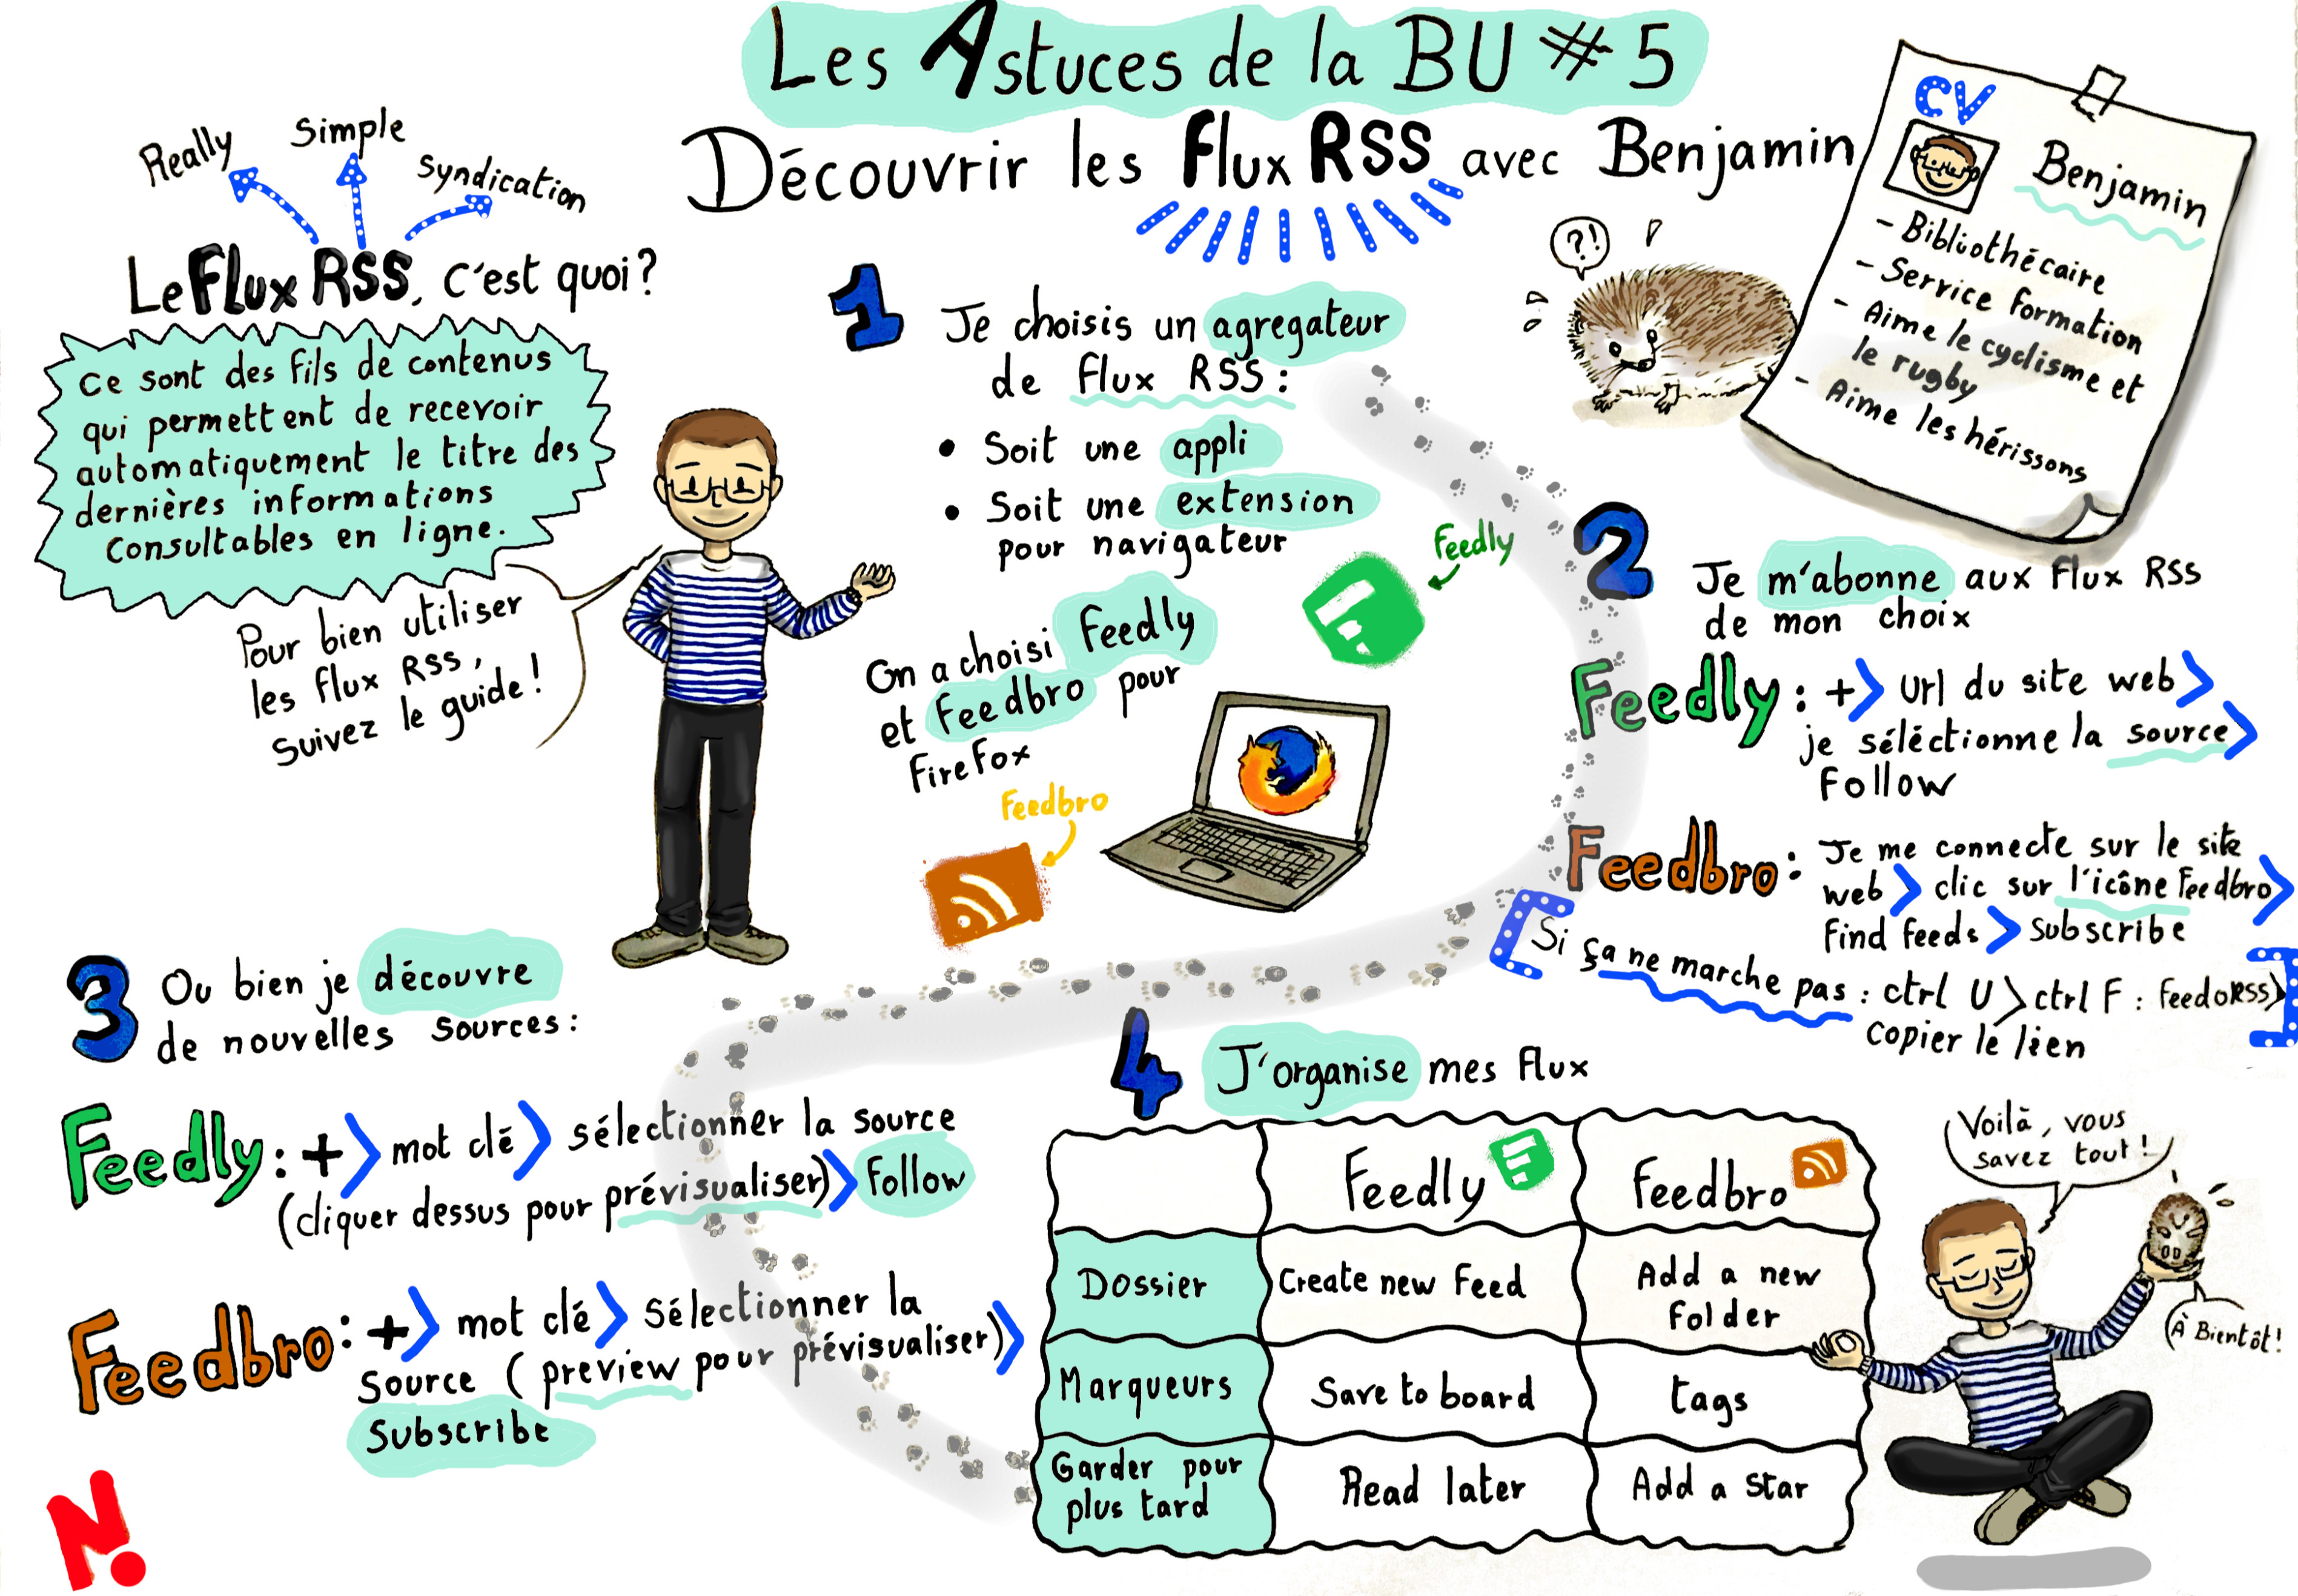 Les Astuces de la BU # 5
Découvrir les Flux RSS avec Benjamin
Really
Simple
Syndication
Le Flux RSS, c'est quoi ?
Ce sont des fils de contenus
qui permettent de recevoir
automatiquement le titre des
dernières informations
consultables en ligne.
Pour bien utiliser
les flux RSS,
suivez le guide !
CV
Benjamin
- Bibliothécaire
- Service formation
- Aime le cyclisme et
le rugby
- Aime les hérissons
?!
1
Je choisis un agregateur
de flux RSS :
• Soit une appli
• Soit une extension
pour navigateur
On a choisi Feedly
et Feedbro pour
FireFox
Feedly
Feedbro
2
Je m'abonne aux flux RSS
de mon choix
Feedly : + > Url du site web >
je séléctionne la source >
Follow
Feedbro : Je me connecte sur le site
web > clic sur l'icône Feedbro >
Find feeds > Subscribe
[Si ça ne marche pas : ctrl U > ctrl F : feedoRSS >
copier le lien]
3
Ou bien je découvre
de nouvelles sources :
Feedly : + > mot clé > sélectionner la source
(cliquer dessus pour prévisualiser) > Follow
Feedbro : + > mot clé > Sélectionner la
source (preview pour prévisualiser) >
Subscribe
4
J'organise mes flux
Feedly
Feedbro
Dossier
Create new Feed
Add a new
folder
Marqueurs
Save to board
tags
Garder pour
plus tard
Read later
Add a star
Voilà, vous
savez tout !
À Bientôt !
N.